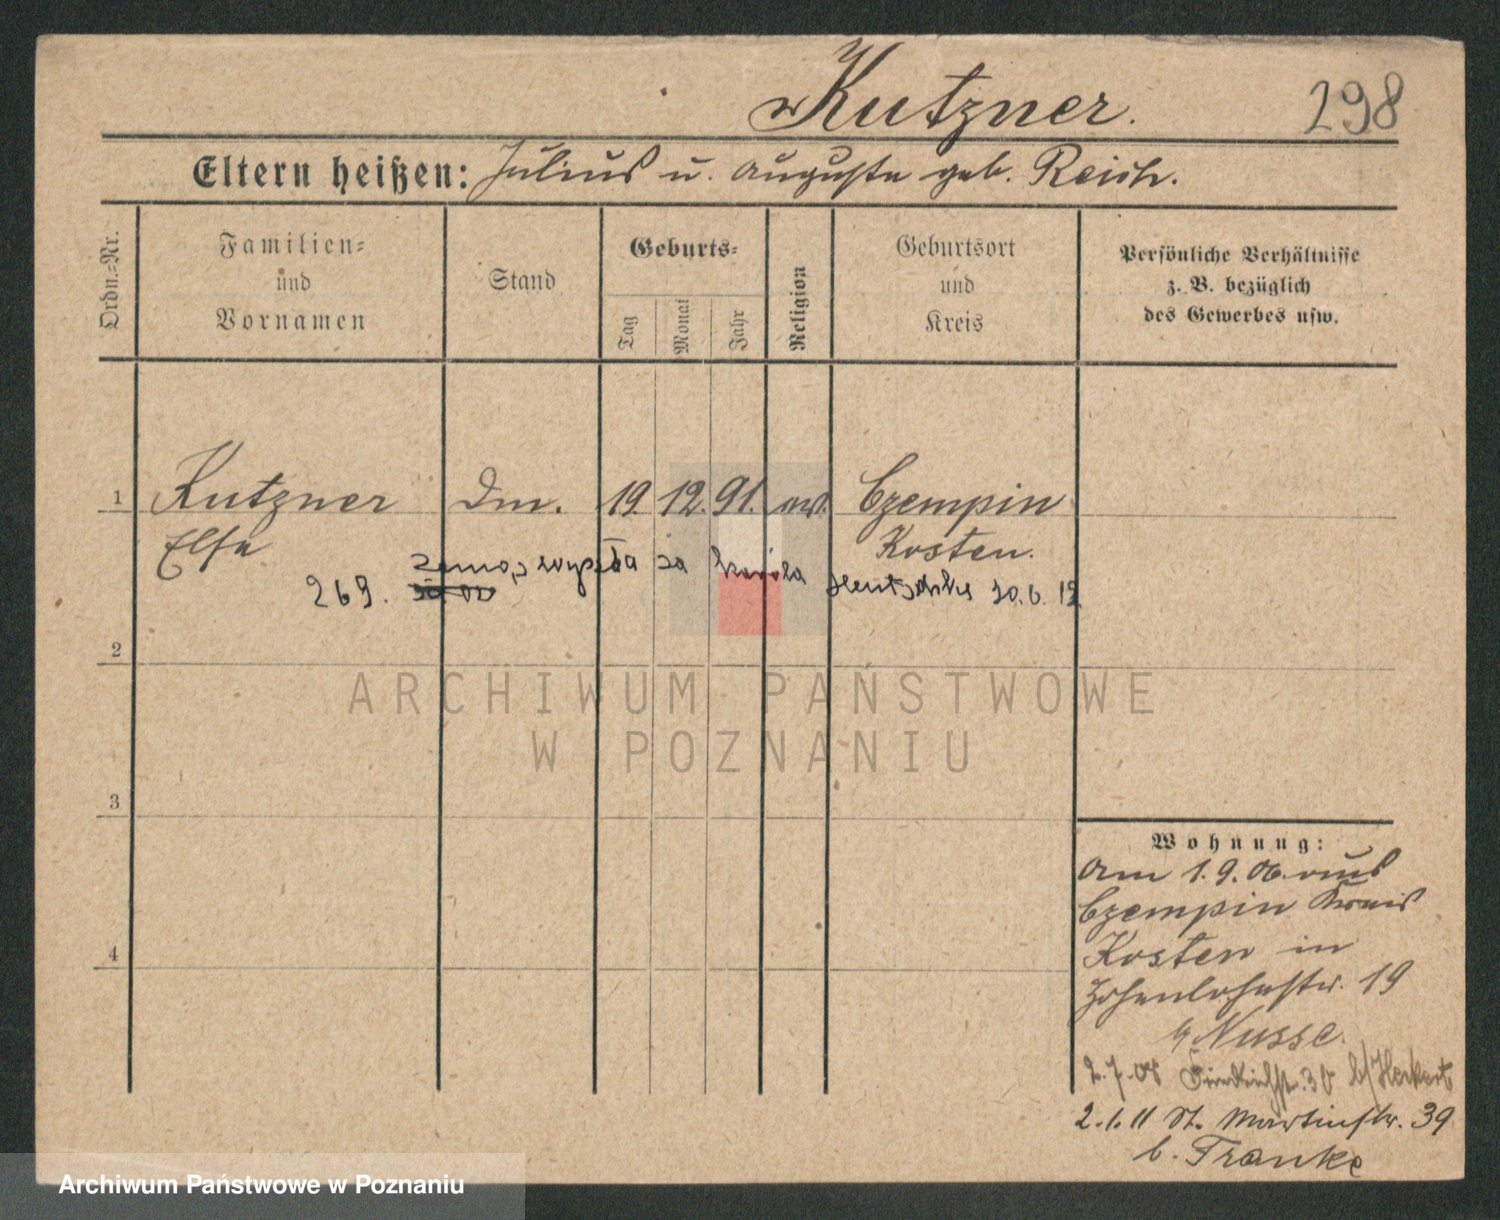 Kutzner. 298
Eltern heißen: Julius u. Auguste geb. Reich.
Ordn.=Nr.
Familien=
und
Vornamen
Stand
Geburts=
Tag
Monat
Jahr
Religion
Geburtsort
und
Kreis
Persönliche Verhältnisse
z. B. bezüglich
des Gewerbes usw.
1 Kutzner Dm. 19. 12. 91. ev. Czempin
Else Kosten.
zamąż wyszła za Karola
269. Hentschke 10.6.19
2
ARCHIWUM PAŃSTWOWE
W POZNANIU
3
4
Wohnung:
Am 1.9.06. aus
Czempin Kreis
Kosten in
Hohenlohestr. 19
b/ Nusse.
2.7.08 30 b/
2.1.11 St. Martinstr. 39
b. Franke
Archiwum Państwowe w Poznaniu